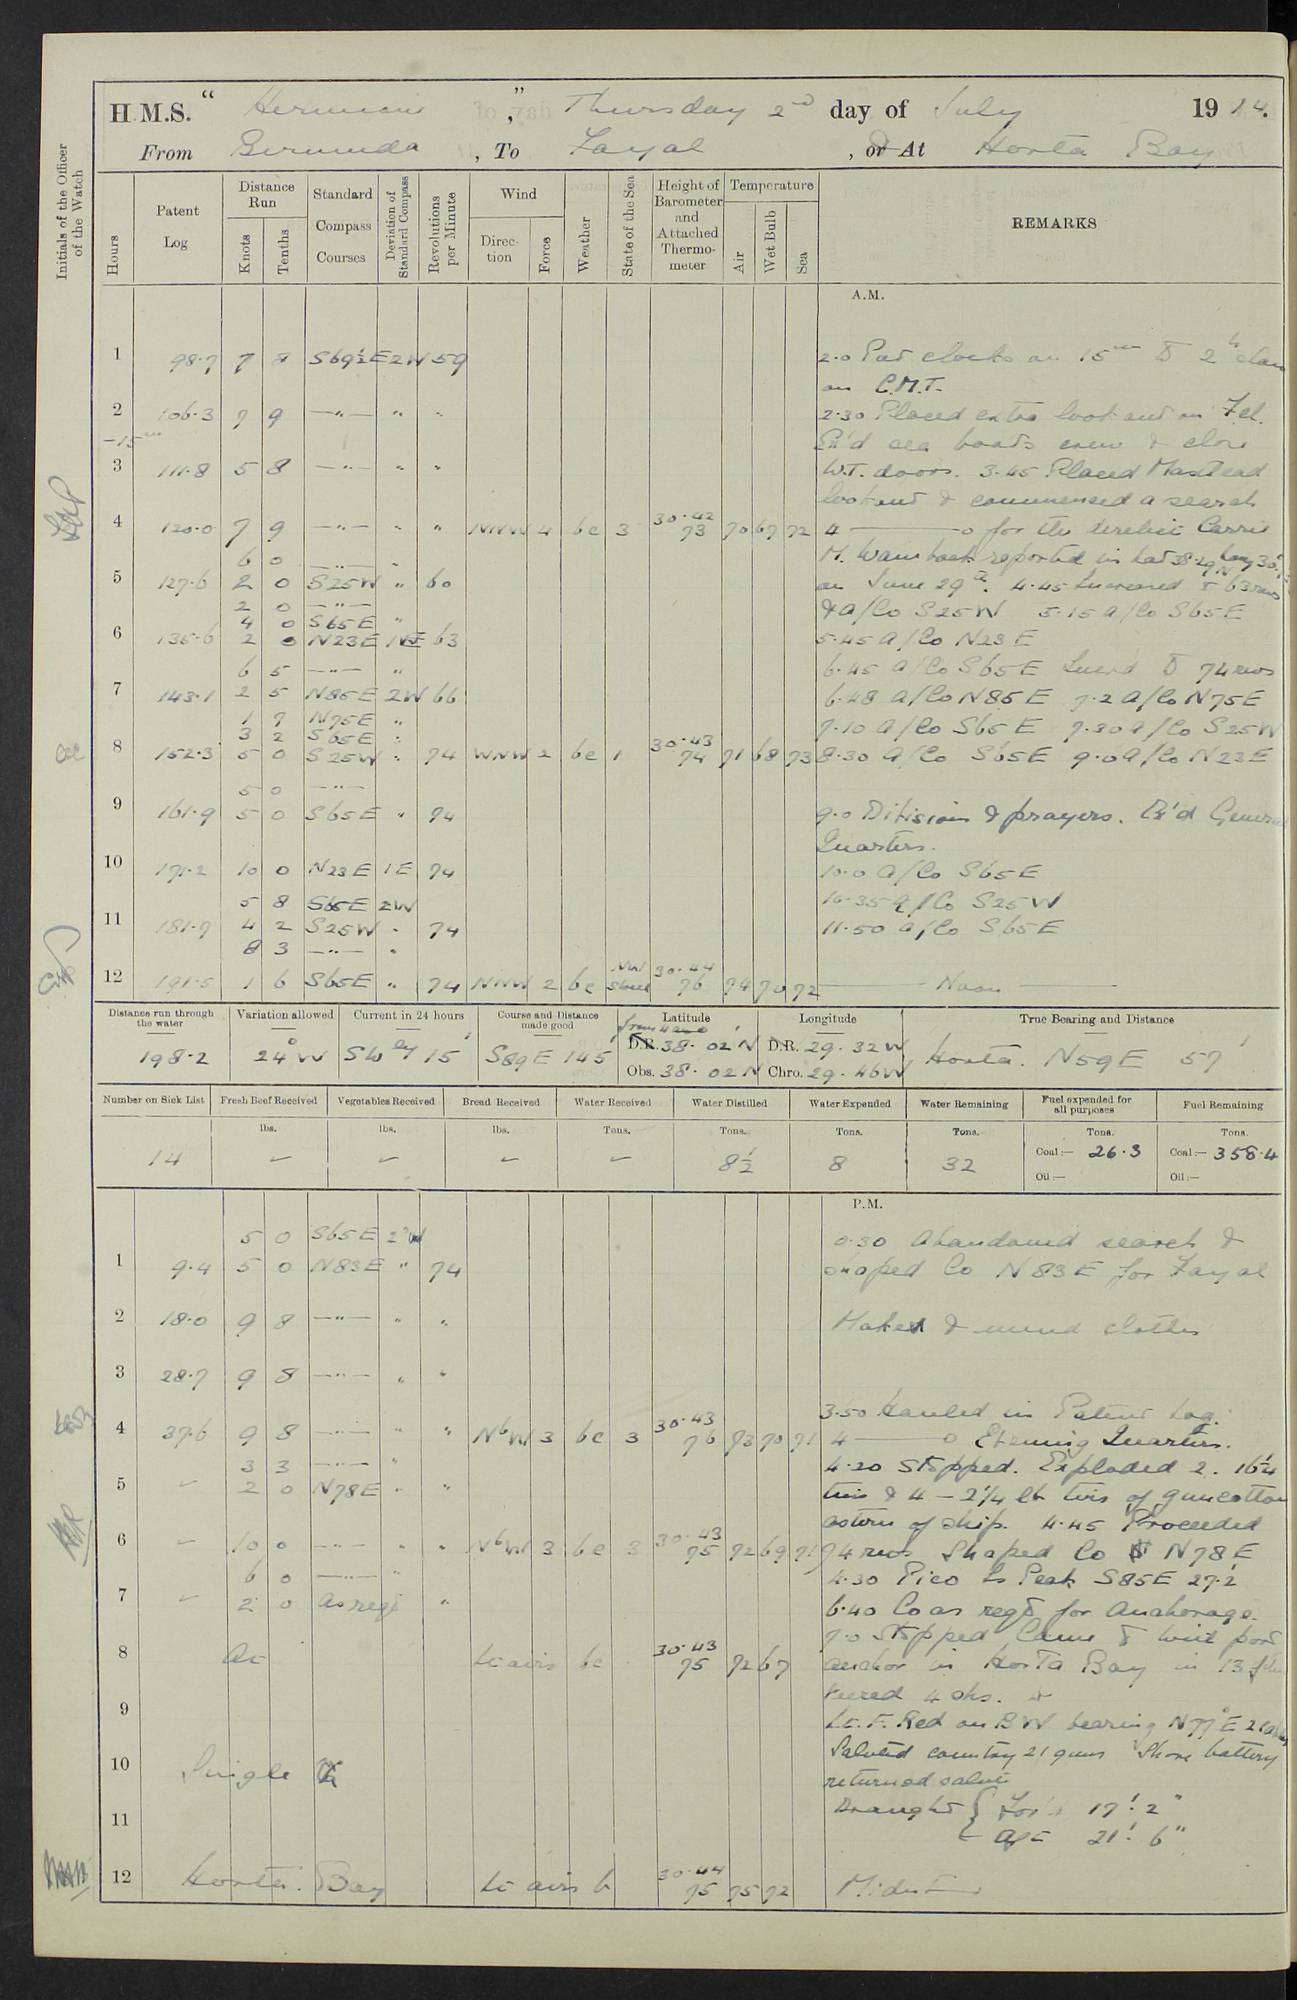 H.M.S. "Hermione", Thursday 2nd day of July 1914.
From Bermuda, To Fayal, or At Horta Bay
Initials of the Officer of the Watch
Hours
Patent Log
Distance Run
Knots
Tenths
Standard Compass Courses
Deviation of Standard Compass
Revolutions per Minute
Wind
Direction
Force
Weather
State of the Sea
Height of Barometer and Attached Thermometer
Temperature
Air
Wet Bulb
Sea
REMARKS
A.M.
1 98.7 7 8 S69½E 2W 59 2.0 Put clocks on 15m to 2h slow
on G.M.T.
2 106.3 7 9 —"— " " 2.30 Placed extra look out on Fcl.
-15m Ex'd sea boats crew & close
3 111.8 5 8 —"— " " W.T. doors. 3.45 Placed Masthead
lookout & commenced a search
4 120.0 7 9 —"— " " NNW 4 bc 3 30.42 73 70 67 72 4 —— 0 for the derelict Carrie
6 0 —"— " M. reported in Lat 38.29N Long 30
5 127.6 2 0 S25W " 60 on June 29th. 4.45 Increased to 63 revs
2 0 —"— & A/Co S25W 5.15 A/Co S65E
4 0 S65E "
6 135.6 2 0 N23E 1E 63 5.45 A/Co N23E
6 5 —"— " 6.45 A/Co S65E Incrd to 74 revs
7 143.1 2 5 N85E 2W 66 6.48 A/Co N85E 7.2 A/Co N75E
1 7 N75E " 7.10 A/Co S65E 7.30 A/Co S25W
3 2 S65E "
8 152.3 5 0 S25W " 74 WNW 2 bc 1 30.43 74 71 68 73 8.30 A/Co S65E 9.0 A/Co N23E
5 0 —"—
9 161.9 5 0 S65E " 74 9.0 Divisions & prayers. Ex'd General
Quarters.
10 171.2 10 0 N23E 1E 74 10.0 A/Co S65E
5 8 S65E 2W 10.35 A/Co S25W
11 181.7 4 2 S25W " 74 11.50 A/Co S65E
8 3 —"— "
12 191.5 1 6 S65E " 74 NNW 2 bc 30.44 76 74 70 72 —— Noon ——
Distance run through the water
Variation allowed
Current in 24 hours
Course and Distance made good
Latitude
Longitude
True Bearing and Distance
198.2 24°W SWly 15' S89E 145' D.R. 38.02'N D.R. 29.32W Horta. N59E 57'
Obs. 38.02N Chro. 29.46W
Number on Sick List
Fresh Beef Received
Vegetables Received
Bread Received
Water Received
Water Distilled
Water Expended
Water Remaining
Fuel expended for all purposes
Fuel Remaining
lbs. lbs. lbs. Tons. Tons. Tons. Tons. Tons. Tons.
14 – – – – 8½ 8 32 Coal:— 26.3 Coal:— 358.4
Oil:— Oil:—
P.M.
5 0 S65E 2°W 0.30 Abandoned search &
1 9.4 5 0 N83E " 74 shaped Co N83E for Fayal
2 18.0 9 8 —"— " " Make & mend clothes
3 28.7 9 8 —"— " "
3.50 Hauled in Patent Log.
4 37.6 9 8 —"— " " NbW 3 bc 3 30.43 76 73 70 71 4 —— 0 Evening Quarters.
3 3 —"— " 4.20 Stopped. Exploded 2. 16¼
5 – 2 0 N78E " " tins & 4 – 2¼ lb tins of guncotton
astern of ship. 4.45 Proceeded
6 – 10 0 —"— " " NbW 3 bc 3 30.43 75 72 69 71 74 revs Shaped Co N78E
6 0 —"— " 4.30 Pico Is Peak S85E 27.2'
7 – 2 0 As reqd " 6.40 Co as reqd for Anchorage.
7.0 Stopped Came to with port
8 At Lt airs bc 30.43 75 72 67 anchor in Horta Bay in 13 fms
veered 4 shs.
9 Lt. F. Red on BW bearing N77°E 2 cables
Saluted country 21 guns Shore battery
10 Single returned salute
11 Draught { For'd 17' 2"
Aft 21' 6"
12 Horta. Bay Lt airs b 30.44 75 75 72 Midnt